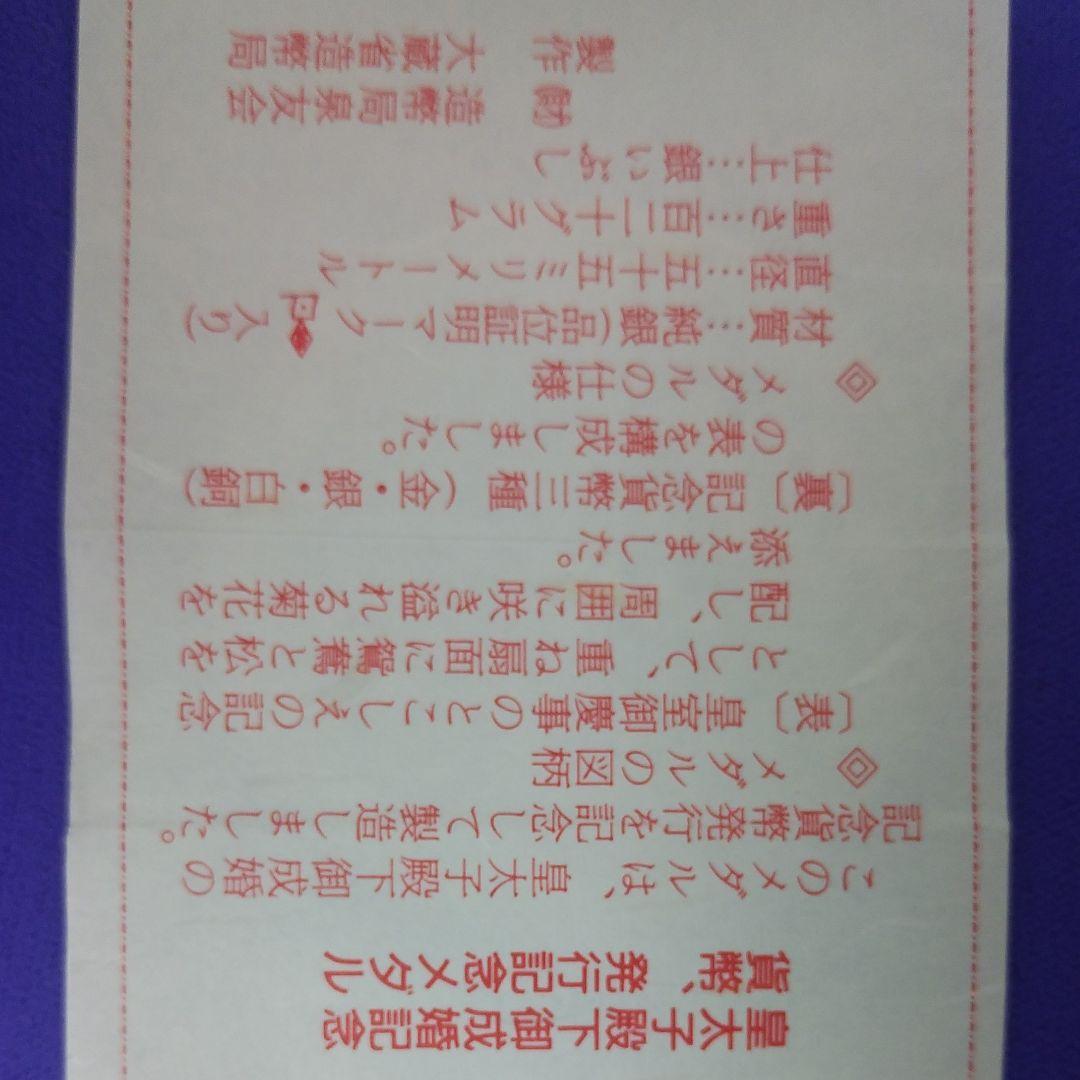 皇太子殿下御成婚記念
貨幣、発行記念メダル
このメダルは、皇太子殿下御成婚の
記念貨幣発行を記念して製造しました。
◈ メダルの図柄
〔表〕皇室御慶事のとこしえの記念
として、重ね扇面に鴛鴦と松を
配し、周囲に咲き溢れる菊花を
添えました。
〔裏〕記念貨幣三種(金・銀・白銅)
の表を構成しました。
◈ メダルの仕様
材質…純銀(品位証明マーク 入り)
直径…五十五ミリメートル
重さ…百二十グラム
仕上…銀いぶし
㈶ 造幣局泉友会
製作 大蔵省造幣局